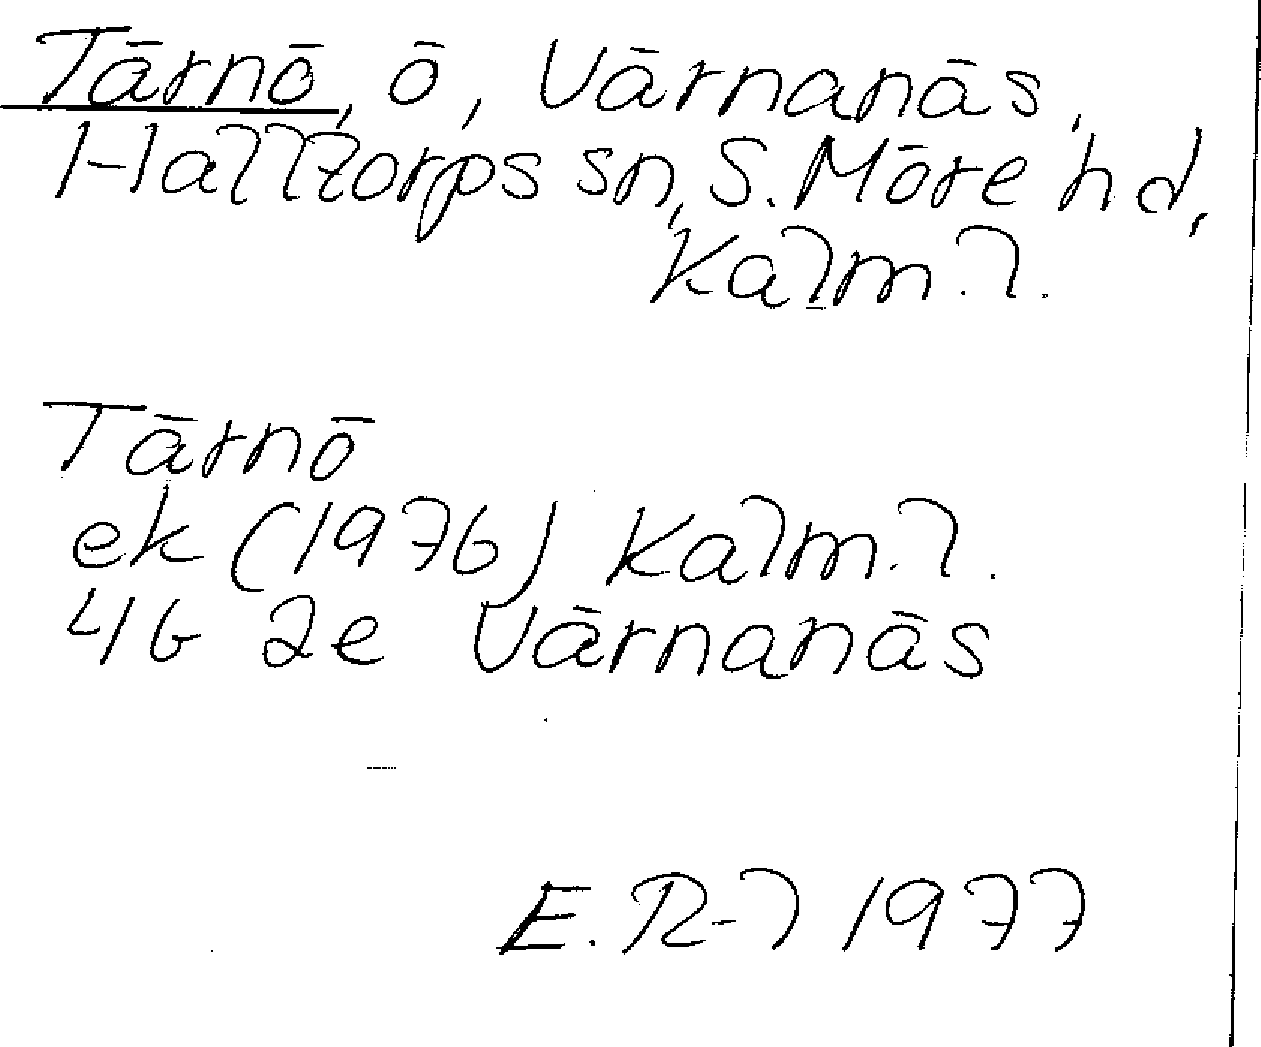 Tärnö, ö, Värnanäs,
Halltorps sn, S. Möre hd,
Kalm. l.
Tärnö
ek (1976) Kalm. l.
4G 2e Värnanäs
E. R-l 1977